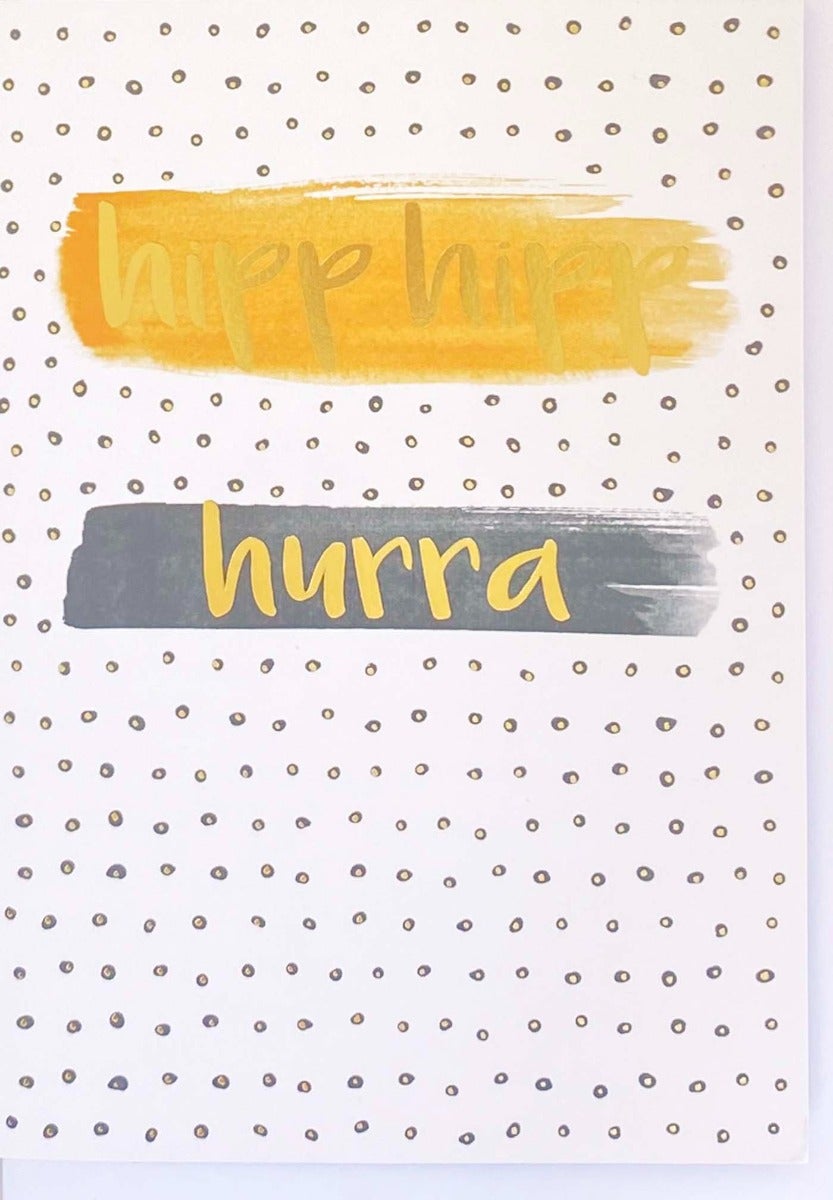 hipp hipp
hurra